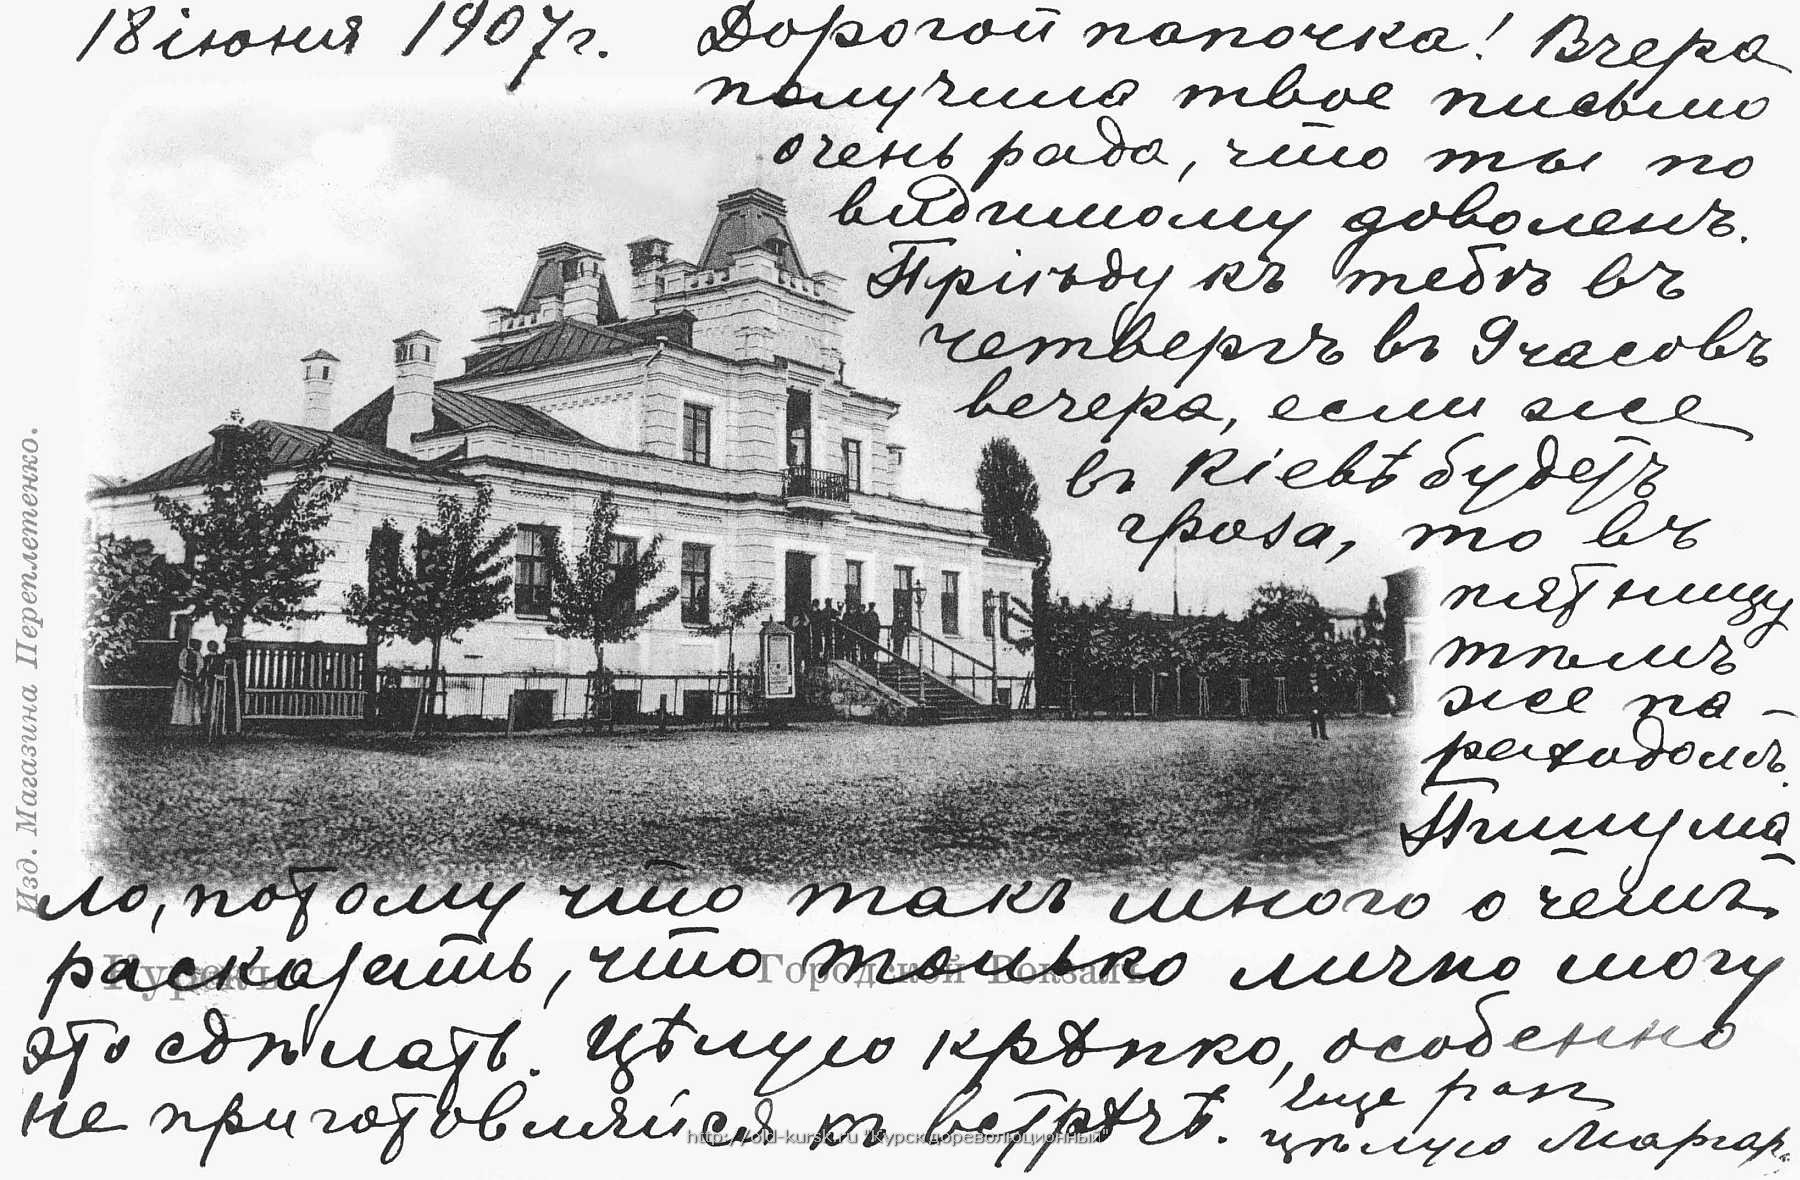 18 іюня 1907 г. Дорогой папочка! Вчера
получила твое письмо
очень рада, что ты по
видимому доволенъ.
Пріѣду къ тебѣ въ
четвергъ въ 9 часовъ
вечера, если же
въ Кіевѣ будетъ
гроза, то въ
пятницу
тѣмъ
же па-
роходомъ.
Пишу ма
ло, потому что такъ много о чемъ
расказать, что только лично могу
это сдѣлать. Цѣлую крѣпко, особенно
не приготовляйся къ встрѣчѣ. Еще разъ
цѣлую Маргар.
Изд. Магазина Переплетенко.
Курскъ
Городской Вокзалъ
http://old-kursk.ru "Курск дореволюционный"